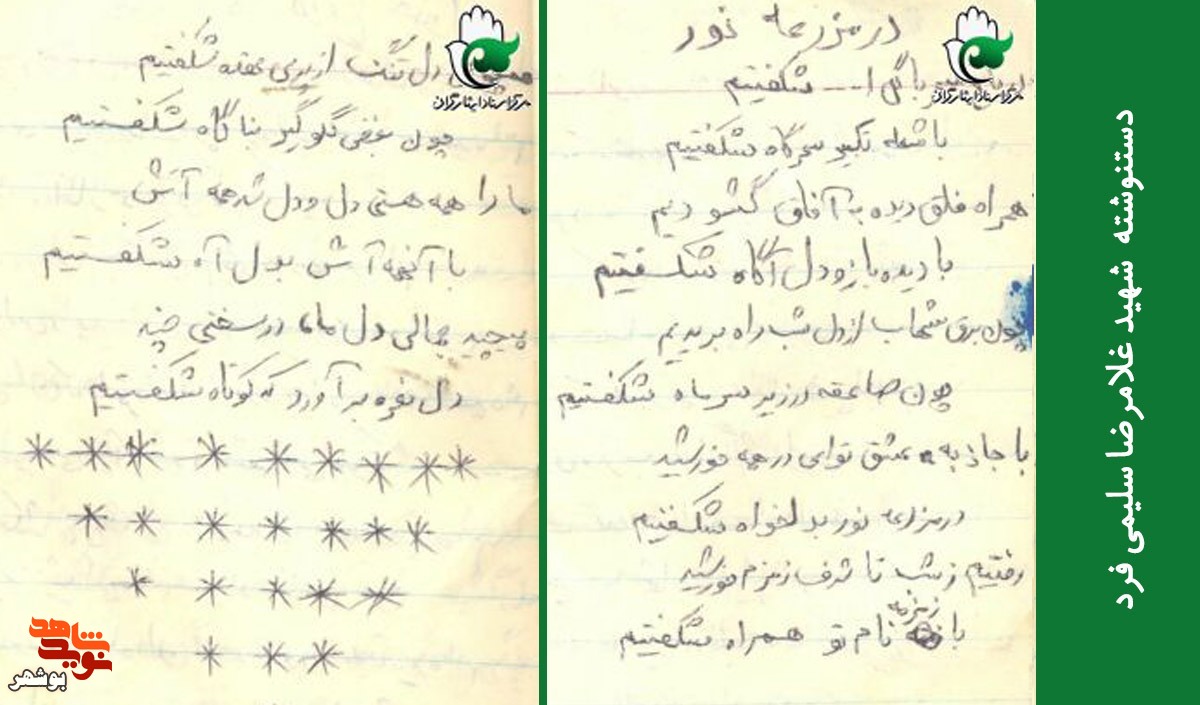 در مزرعه نور
با گل ا... شکفتیم
با شعله تکبیر سحرگاه شکفتیم
همراه فلق دیده به آفاق گشودیم
با دیده باز و دل آگاه شکفتیم
چون برق شهاب از دل شب راه بریدیم
چون صاعقه در زیر سر ماه شکفتیم
با جاذبه عشق تو ای در همه خورشید
در مزرعه نور بدلخواه شکفتیم
رفتیم ز شب تا شرف زمزم خورشید
با زمزمه نام تو همراه شکفتیم
دل تنگ از پی عقده شکفتیم
چون بغضی گلوگیر بناگاه شکفتیم
ما را همه هستی دل و دل شد همه آتش
با آنهمه آتش بدل آه شکفتیم
پیچید مجالی دل ما، در سخنی چند
دل نعره برآورد که کوتاه شکفتیم
مرکز اسناد ایثارگران
مرکز اسناد ایثارگران
دستنوشته شهید غلامرضا سلیمی فرد
نوید شاهد
بوشهر